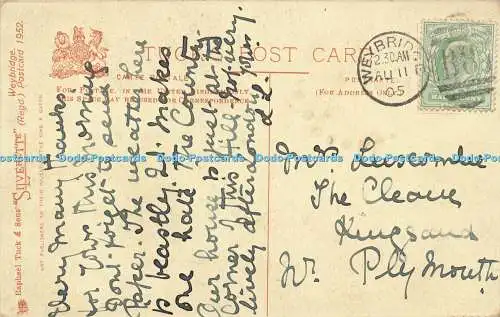 Weybridge.
(Regd.) Postcard 1952.
Raphael Tuck & Sons' "SILVERETTE"
ART PUBLISHERS TO THEIR MAJESTIES THE KING & QUEEN.
TUCK'S POST CARD
CARTE POSTALE
FOR POSTAGE IN THE UNITED KINGDOM ONLY,
THIS SPACE MAY BE USED FOR CORRESPONDENCE
(FOR ADDRESS ONLY)
WEYBRIDGE
2.30 AM
AU 11
05
Very many thanks
for yours this morning
Don't forget to send
Paper. The weather here
is beastly. It makes
one hate the Country
Our house is just to
corner of this hill. Very
lively afternoon
L.L.
Luscombe
The Cleave
Kingsand
Nr. Plymouth
Westwood-Postcards Westwood-Postcards Westwood-Postcards